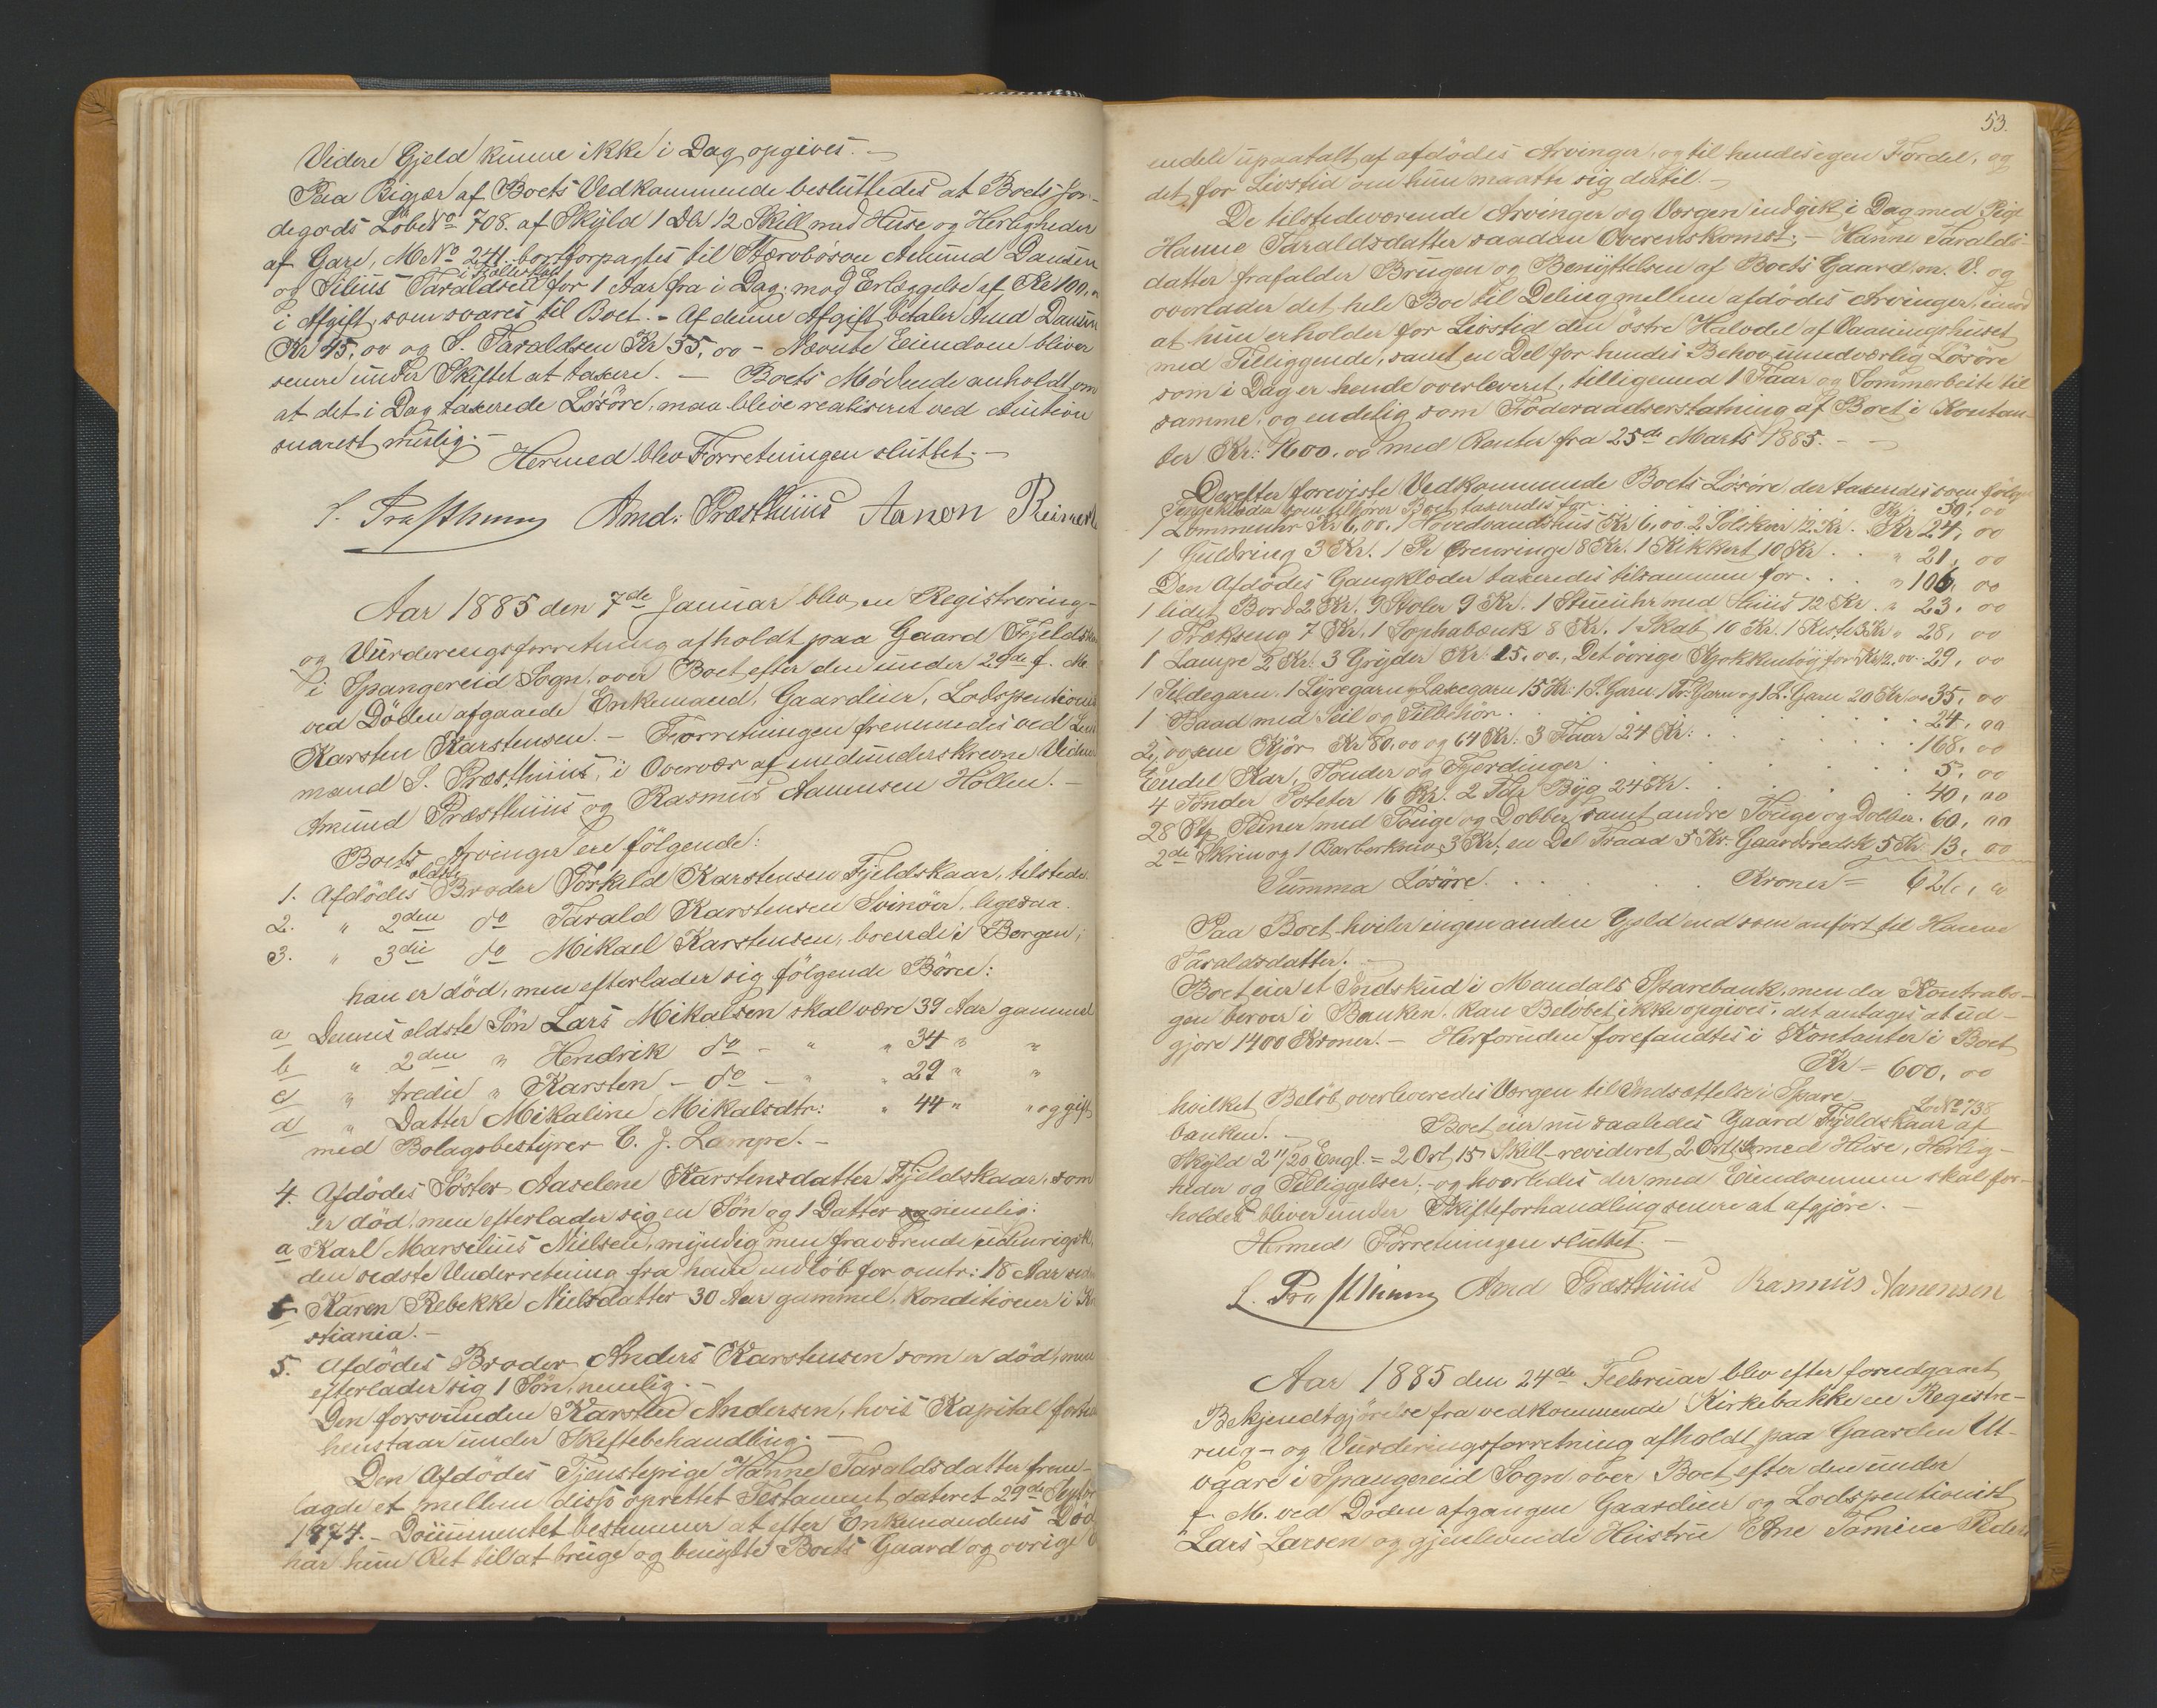 Videre Gjeld kunne ikke i Dag opgives. —
Paa Bigjær af Boets Vedkommende besluttedes at Boets Jor-
degods Löbe No 708. af Skyld 1 Dlr 12 Skill med Huse og Herligheder
af Gare, M No 241. bortforpagtes til Stervbösøn Amund Dansen
i Fjellerskap
og Silius Taraldsen for 1 Aar fra i Dag. mod Erlæggelse af Kr 100,
i Afgift, som svares til Boet. - Af denne Afgift betaler Amd Dansen
Kr 45,00 og S. Taraldsen Kr 55,00 - Nævnte Eiendom bliver
senere under Skiftet at taxere. — Boets Mödende anholdt om
at det i Dag taxerede Lösöre, maa blive realiseret ved Auktion
snarest mulig. —
Hermed blev Forretningen sluttet. —
S. Præsthuus Amd. Præsthuus Aanon Reiners
Aar 1885 den 7de Januar blev en Registrering-
og Vurderingsforretning afholdt paa Gaard Fjeldskaar
i Spangereid Sogn, over Boet efter den under 29de f. M.
ved Döden afgaaede Enkemand, Gaardeier, Lodspentionist
Karsten Karstensen. - Forretningen fremmedes ved Lens
mand S. Præsthuus, i Overvær af medunderskrevne Vidner
Amund Præsthuus og Rasmus Aanensen Höllen. —
Boets Arvinger ere fölgende:
ældste
1. Afdödes Broder Törkild Karstensen Fjeldskaar, tilstede.
2. " 2den do Tarald Karstensen Svinöer, ligesaa.
3. " 3die do Mikael Karstensen, boende i Bergen;
han er död, men efterlader sig fölgende Börn:
a Dennes ældste Sön Lars Mikalsen skal være 39 Aar gammel
b " 2den " Hendrik do - " " 34 " "
c " tredie " Karsten - do - " " 29 " "
d " Datter Mikaline Mikalsdtr: " 44 " " og gift
med Bolagsbestyrer C. J. Lampe. —
4. Afdödes Söster Aaselene Karstensdatter Fjeldskaar, som
er död, men efterlader sig en Sön og 1 Datter og nemlig:
a Karl Marselius Nielsen, myndig men fraværende udenrigsk,
den sidste Underretning fra ham indlöb for omtr: 18 Aar siden
b Karen Rebekke Nielsdatter 30 Aar gammel, konditioner i Kri
stiania. —
5. Afdödes Broder Anders Karstensen som er död, men
efterlader sig 1 Sön, nemlig. —
Den forsvundne Karsten Andersen, hvis Kapital
henstaar under Skiftebehandling. —
Den Afdödes Tjenstepige Hanne Taraldsdatter frem-
lagde et mellem disse oprettet Testament, dateret 29de Septbr
1874. — Dokumentet bestemmer at efter Enkemandens Död
har hun Ret til at bruge og benytte Boets Gaard og övrige
53.
endele upaatalt af afdödes Arvinger, og til hendes egen Fordel, og
det, for Livstid om hun maatte sig dertil —
De tilstedeværende Arvinger og Værgen indgik i Dag med Pige
Hanne Taraldsdatter saadan Overenskomst; — Hanne Taralds-
datter frafalder Brugen og Benyttelsen af Boets Gaard m. V. og
overlader det hele Boe til Deling mellem afdödes Arvinger, imod
at hun erholder for Livstid den östre Halvdel af Vaaningshuset
med Tilliggende, samt en Del for hendes Behov unødværlig Lösöre
som i Dag er hende overleveret, tilligemed 1 Faar og Sommerbeite til
samme, og endelig som Föderaadserstatning af Boet i Kontan-
ter Kr: 1600,00 med Renter fra 25de Marts 1885. —
Derefter foreviste Vedkommende Boets Lösöre, der taxeredes som fölger
Sengeklæder som tilhörer Boet taxeredes for . . . Kr. 50,00
1 Lommeuhr Kr 6,00. 1 Hovedvandshus Kr 6,00. 2 Sölskeer 12 Kr. Kr 24,00
1 Guldring 3 Kr. 1 Pr Ørenringe 8 Kr. 1 Kikkert 10 Kr . . " 21,00
Den Afdödes Gangklæder taxeredes tilsammen for . . . " 106,00
1 lidet Bord 2 Kr. 9 Stoler 9 Kr. 1 Stueuhr med Huus 12 Kr. " 23,00
1 Trækseng 7 Kr. 1 Sophabænk 8 Kr. 1 Skab 10 Kr. 1 Kiste 3 Kr " 28,00
1 Lampe 2 Kr: 3 Gryder Kr: 15,00., Det övrige Kjøkkentöy for Kr 12,00 - 29,00
1 Sildegarn. 1 Lyregarn Laxegarn 15 Kr. 1 S. Garn. 1 Tr. Garn og 1 L. Garn 20 Kr " 35,00
1 Baad med Seil og Tilbehör . . . 24,00
2, voxne Kjör, Kr 80,00 og 64 Kr: 3 Faar 24 Kr: . . . 168,00
Eendel Kar, Tönder og Fjerdinger . . . 5,00
4 Tönder Poteter 16 Kr. 2 Tdr Byg 24 Kr. . . . 40,00
28 Stk Teiner med Touge og Dobber, samt andre Touge og Dobber. 60,00
2de Skrin og 1 Barberkniv 3 Kr; en Del Traad 5 Kr. Gaardsredsk 5 Kr. 13,00
Summa Lösöre. . . . Kroner = 626,00
Paa Boet hviler ingen anden Gjeld end som anfört til Hanne
Taraldsdatter. —
Boet eier et Indskud i Mandals Sparebank, men da Kontrabo-
gen beroer i Banken, kan Belöbet ikke opgives, det antages at ud-
gjöre 1400 Kroner. — Herforuden forefandtes i Kontanter i Boet
Kr = 600,00
hvilket Belöb overleveredes Værgen til Indsættelse i Spare-
banken. — Boet eier nu saaledes Gaard Fjeldskaar af Lö No 738
Skyld 2 11/20 Engl. = 2 Ort 15 Skill - revideret 2 Ort med Huse, Herlig-
heder og Tilliggelser; - og hvorledes der med Eiendommen skal for-
holdes bliver under Skifteforhandling senere at afgjöre. —
Hermed Forretningen sluttet. —
S. Præsthuus Amd Præsthuus Rasmus Aanensen
Aar 1885 den 24de Februar blev efter forudgaaet
Bekjendtgjörelse fra vedkommende Kirkebakke en Registre-
ring- og Vurderingsforretning afholdt paa Gaarden Ut-
vaare i Spangereid Sogn over Boet efter den under
f. M. ved Döden afgangne Gaardeier og Lodspentionist
Lars Larsen og gjenlevende Hustru Ane Tomine Peders